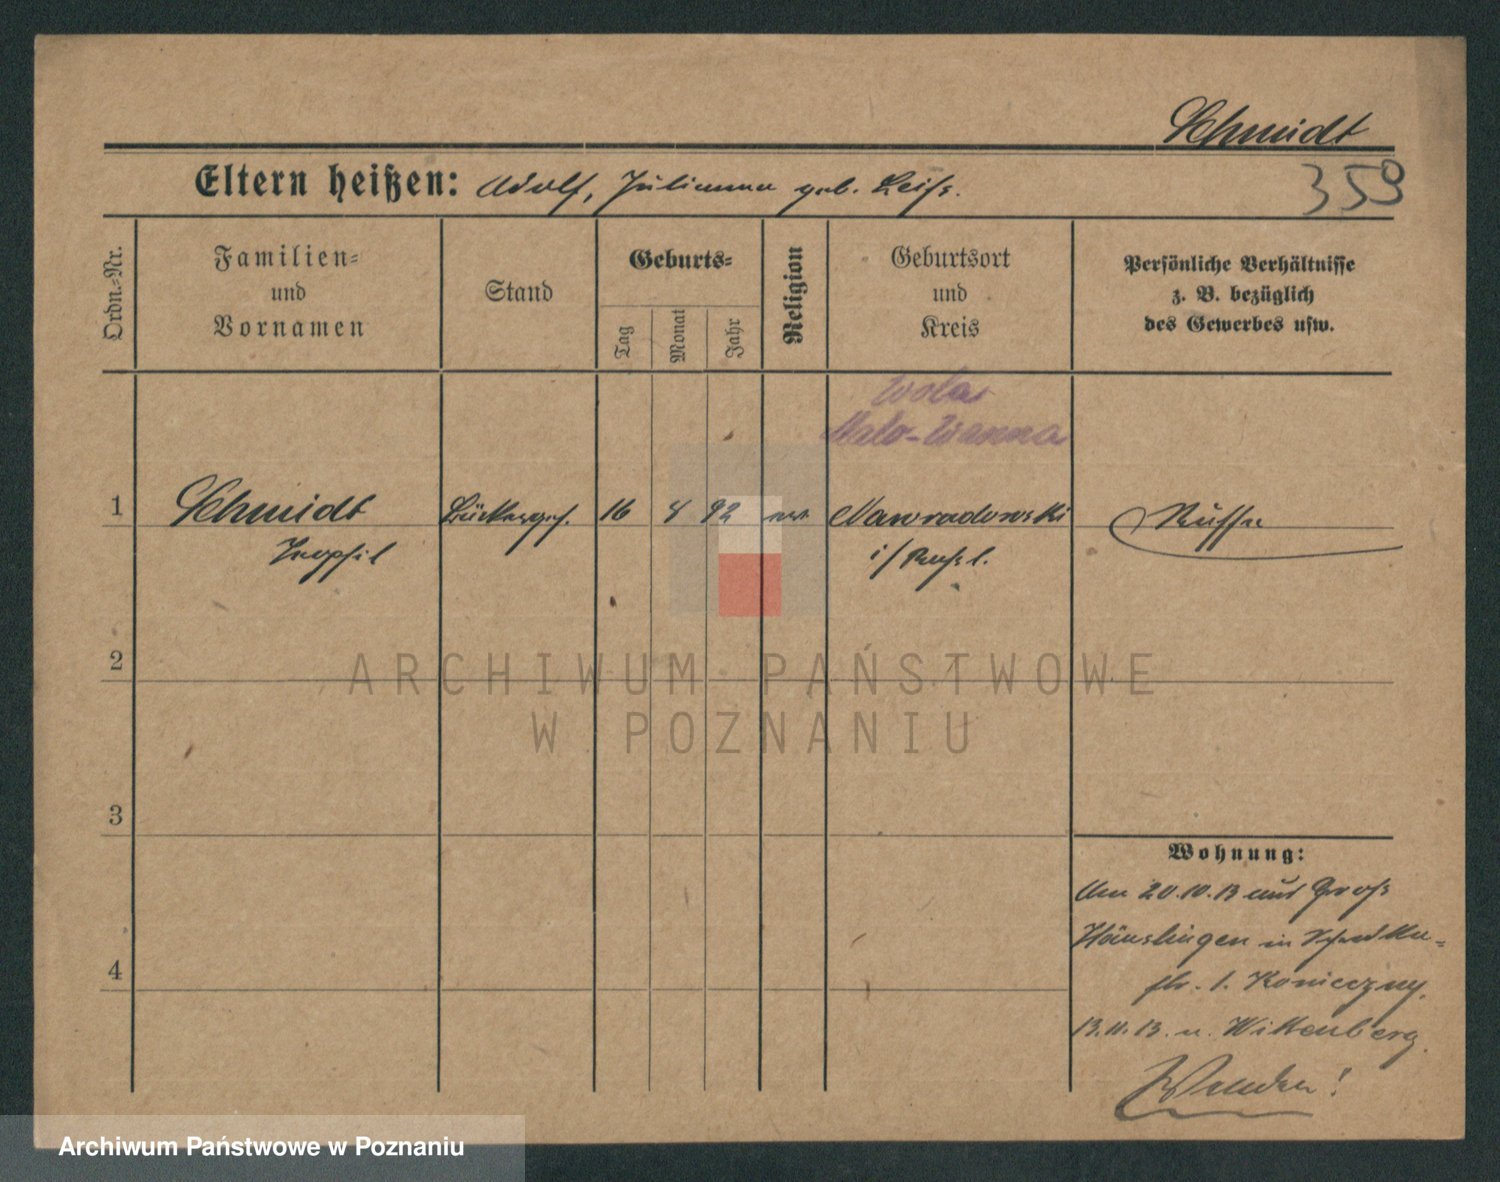 Schmidt
Eltern heißen: Adolf, Julianna geb. Leiß.
359
Ordn.-Nr.
Familien-
und
Vornamen
Stand
Geburts-
Tag
Monat
Jahr
Religion
Geburtsort
und
Kreis
Persönliche Verhältnisse
z. B. bezüglich
des Gewerbes usw.
Wola
1
Schmidt
16
4
92
Nawradowski
Russe
i/Rußl.
2
3
4
Wohnung:
Am 20.10.13 aus Groß
Häuslingen in
str. 1. Konieczny.
13.11.13. n. Wittenberg.
Wenden!
ARCHIWUM PAŃSTWOWE
W POZNANIU
Archiwum Państwowe w Poznaniu